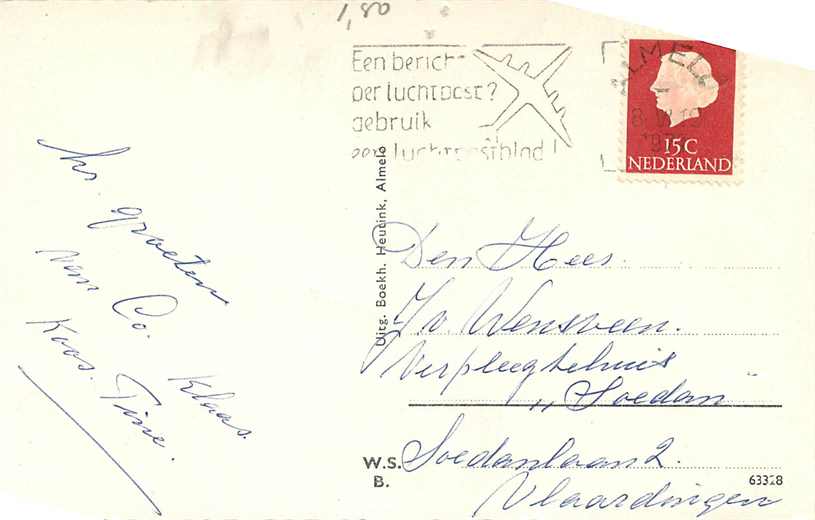 1,80
Een bericht
per luchtpost?
gebruik
een luchtpostblad!
ALMELO
15C
NEDERLAND
Hr. groeten
van Co. Klaas.
Koos. Tine.
Uitg. Boekh. Heudink, Almelo
Den Heer.
J. v. Wensveen.
Verpleegtehuis
„Soedan"
Soedanlaan 2.
Vlaardingen
W.S.
B.
63328